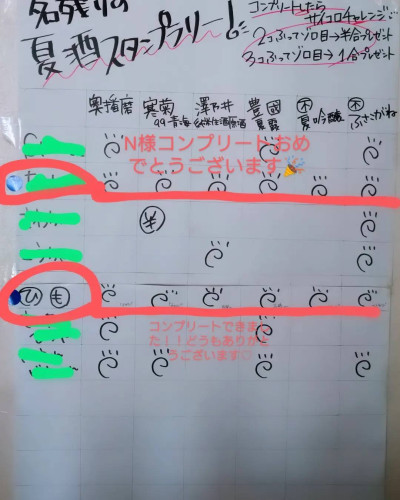 名残りの
夏酒スタンプラリー！
コンプリートしたら
サイコロチャレンジ
2コふってゾロ目→半合プレゼント
3コふってゾロ目→1合プレゼント
奥播磨 寒菊 澤乃井 豊國 木 木
99青海 純米生酒原酒 夏露 夏吟醸 ふさがね
N様コンプリートおめ
でとうございます🎉
半
ひ も
コンプリートできまし
た！！どうもありがと
うございます♡